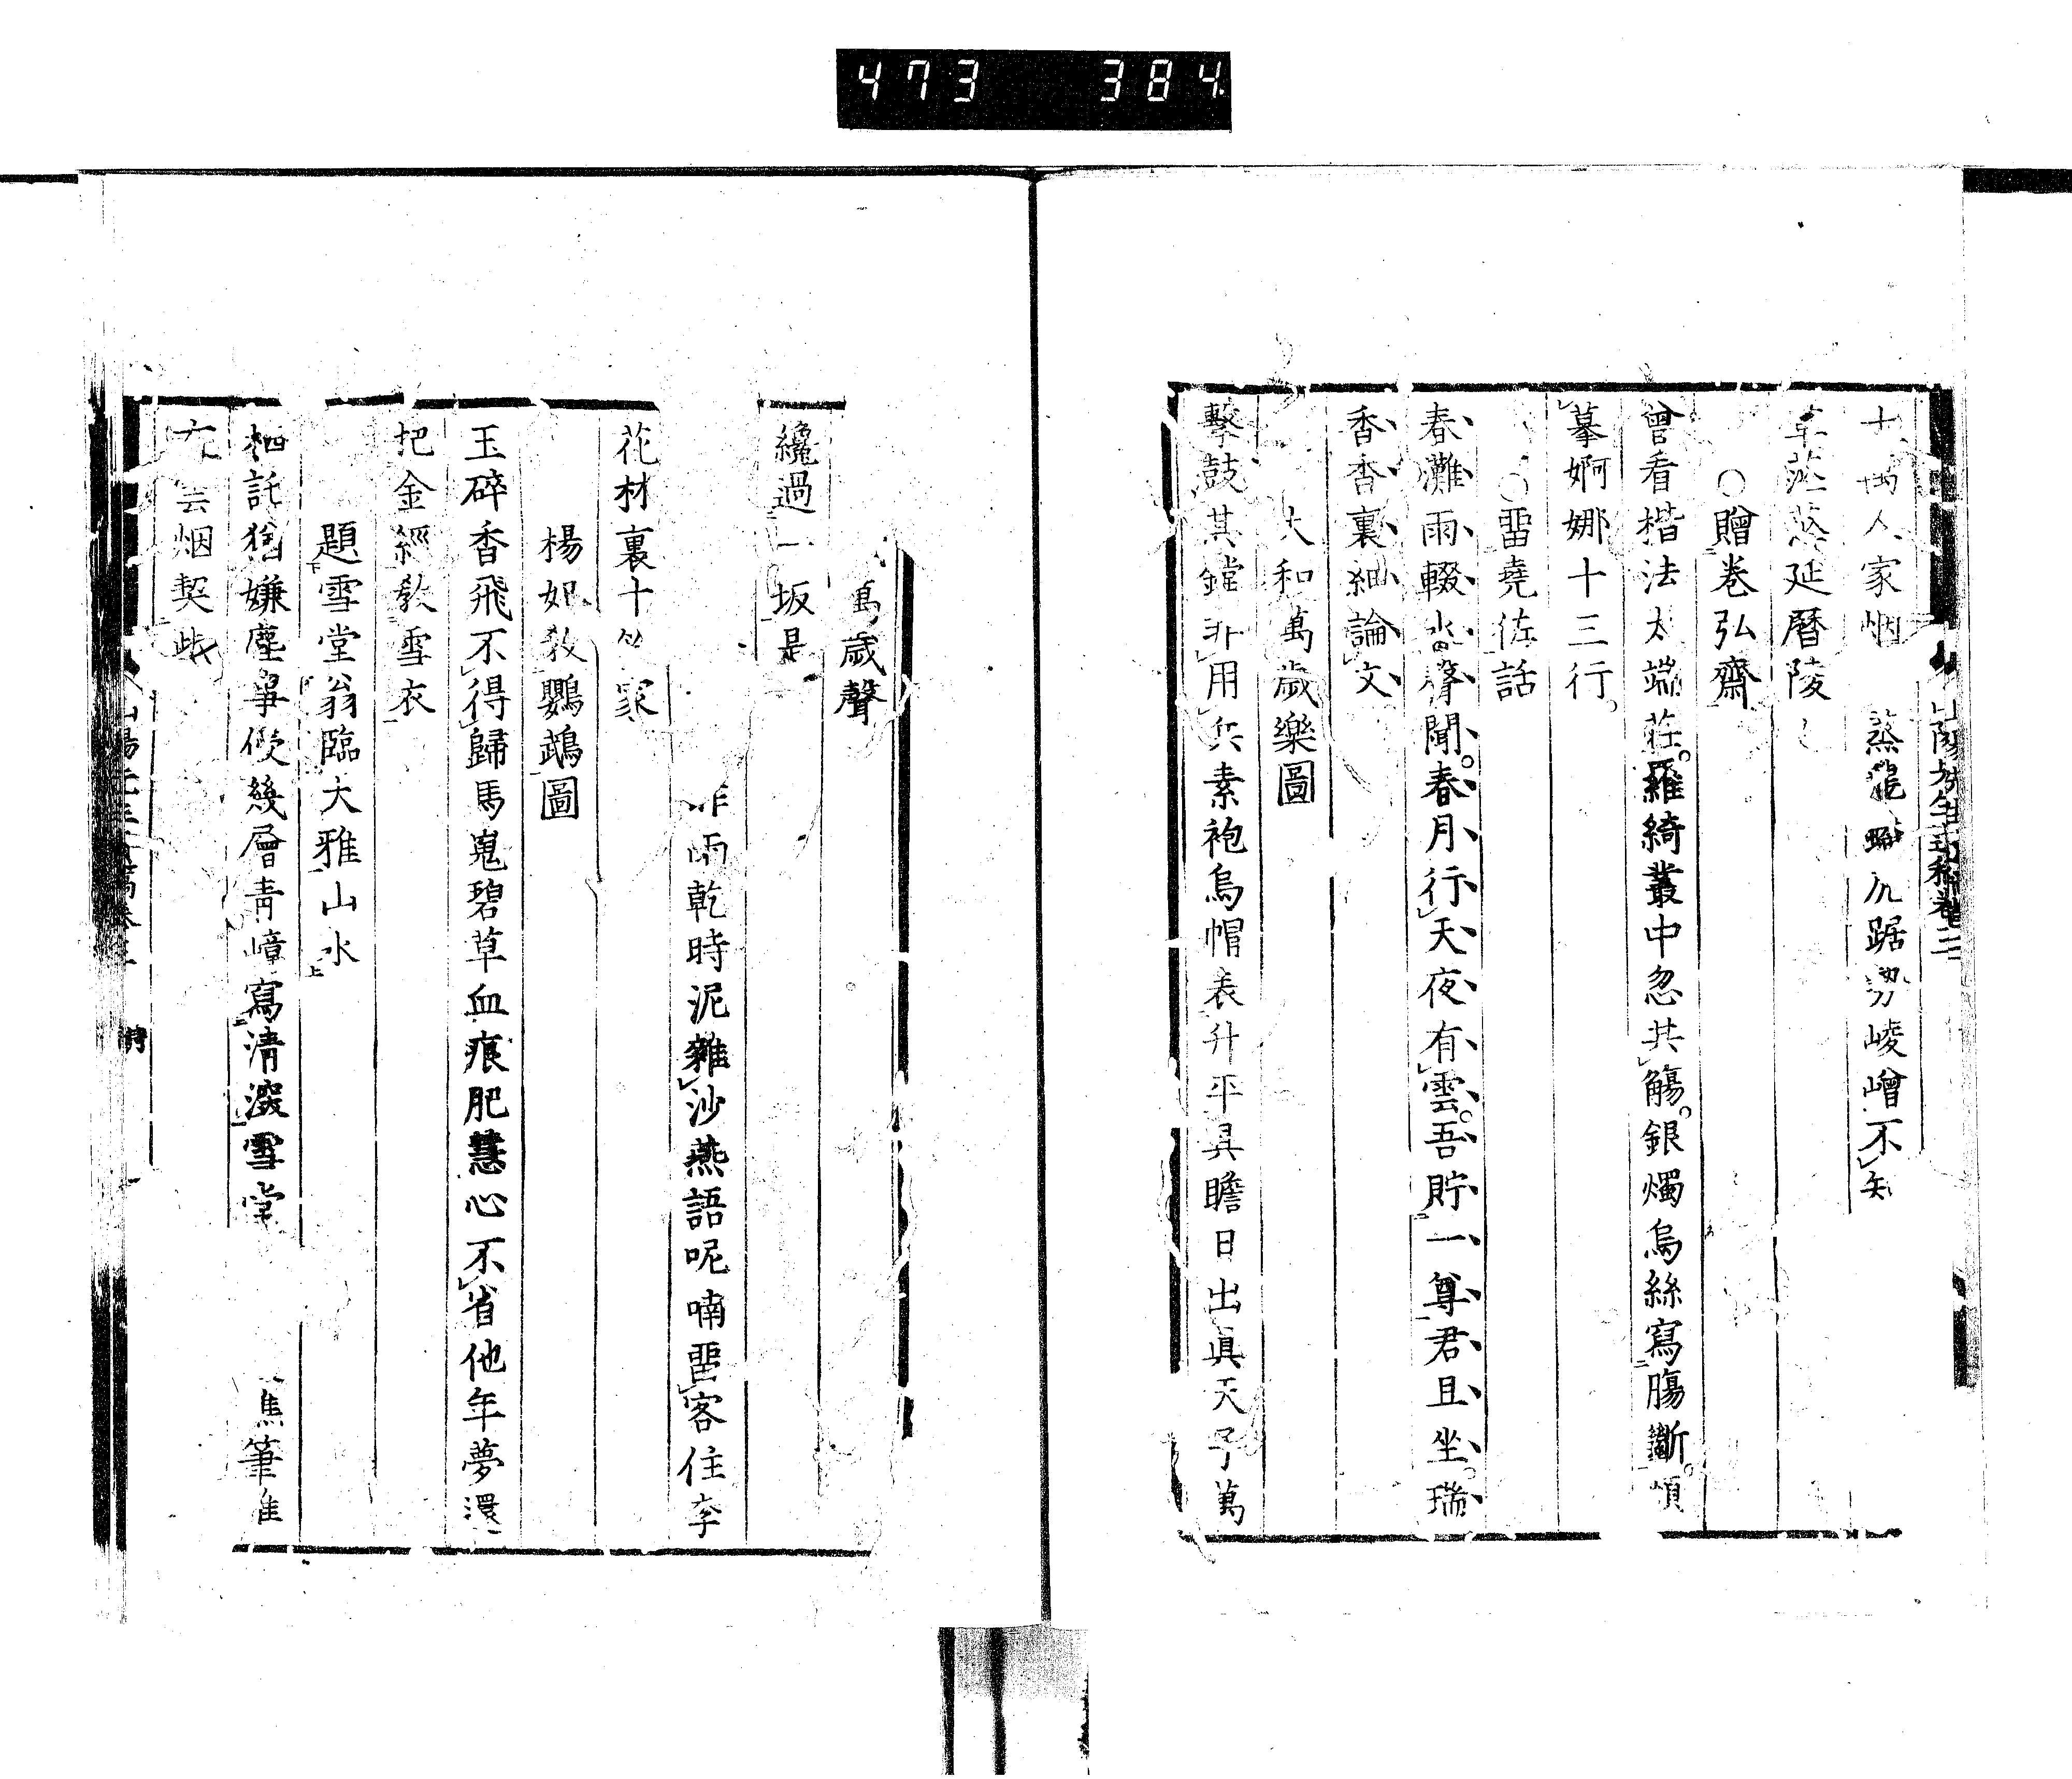 473 384
人家烟 蒸龍 踞勢崚嶒不知
延曆陵
○贈巻弘齋
曾看楷法太端莊。羅綺叢中忽共觴。銀燭烏絲寫腸斷。傾
摹婀娜十三行。
○畱堯佐話
春灘雨輟水聲聞。春月行天夜有雲。吾貯一尊君且坐。瑞
香香裏細論文
大和萬歲樂圖
擊鼓其鏜非用兵素袍烏帽表升平具瞻日出眞天子萬
萬歲聲
纔過一坂是
昨雨乾時泥雜沙燕語呢喃畱客住李
花材裏十 家
楊妃敎鸚鵡圖
玉碎香飛不得歸馬嵬碧草血痕肥慧心不省他年夢還
把金經敎雪衣
題雪堂翁臨大雅山水
栖託猶嫌塵事侵幾層靑嶂寫淸深雪堂 焦筆
烟契